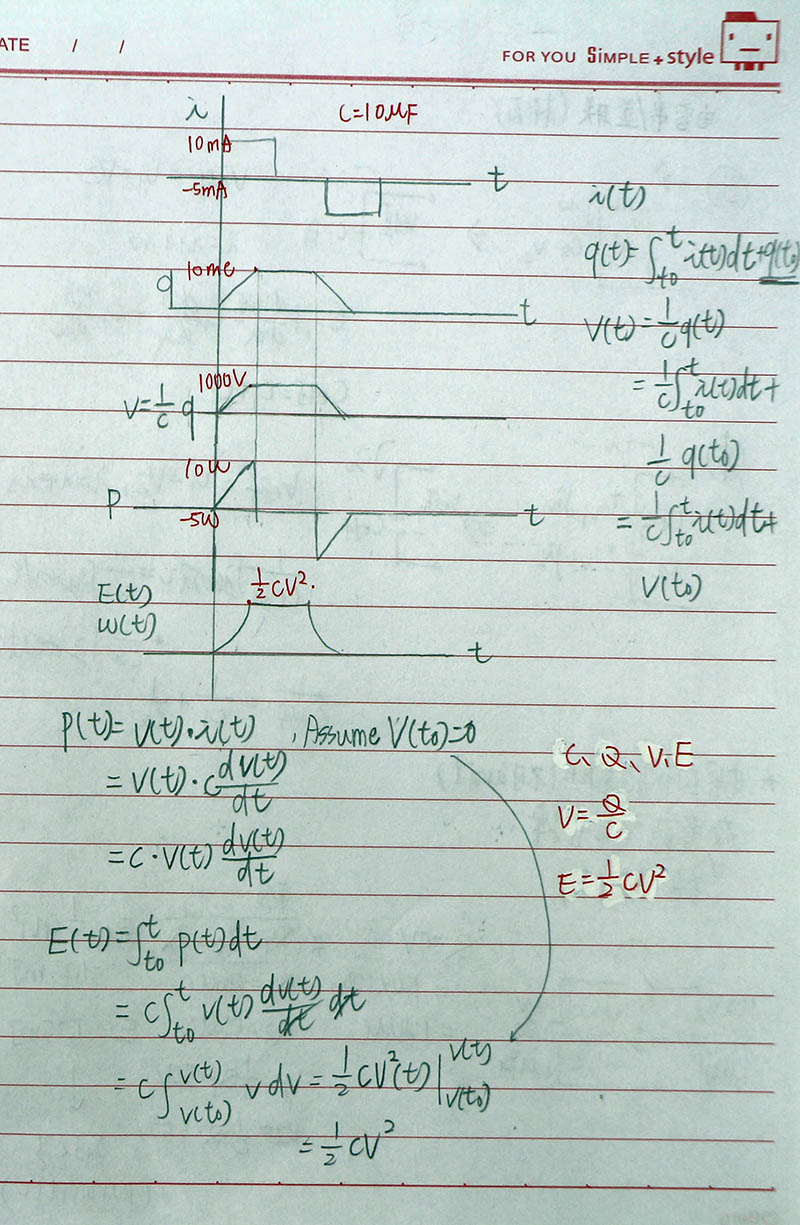 ATE / /
FOR YOU SiMPLE + style
i
C=10μF
10mA
-5mA
t
i(t)
q
10mC
t
q(t)=∫t0^t i(t)dt+q(t0)
V(t)=1/C q(t)
1000V
V=1/C q
=1/C ∫t0^t i(t)dt+
1/C q(t0)
10W
P
-5W
t
=1/C ∫t0^t i(t)dt+
V(t0)
1/2 CV².
E(t)
w(t)
t
P(t)=V(t)·i(t) , Assume V(t0)=0
=V(t)·C dV(t)/dt
=C·V(t) dV(t)/dt
C、Q、V、E
V=Q/C
E=1/2 CV²
E(t)=∫t0^t P(t)dt
=C∫t0^t V(t) dV(t)/dt dt
=C∫V(t0)^V(t) V dV=1/2 CV²(t)|V(t0)^V(t)
=1/2 CV²